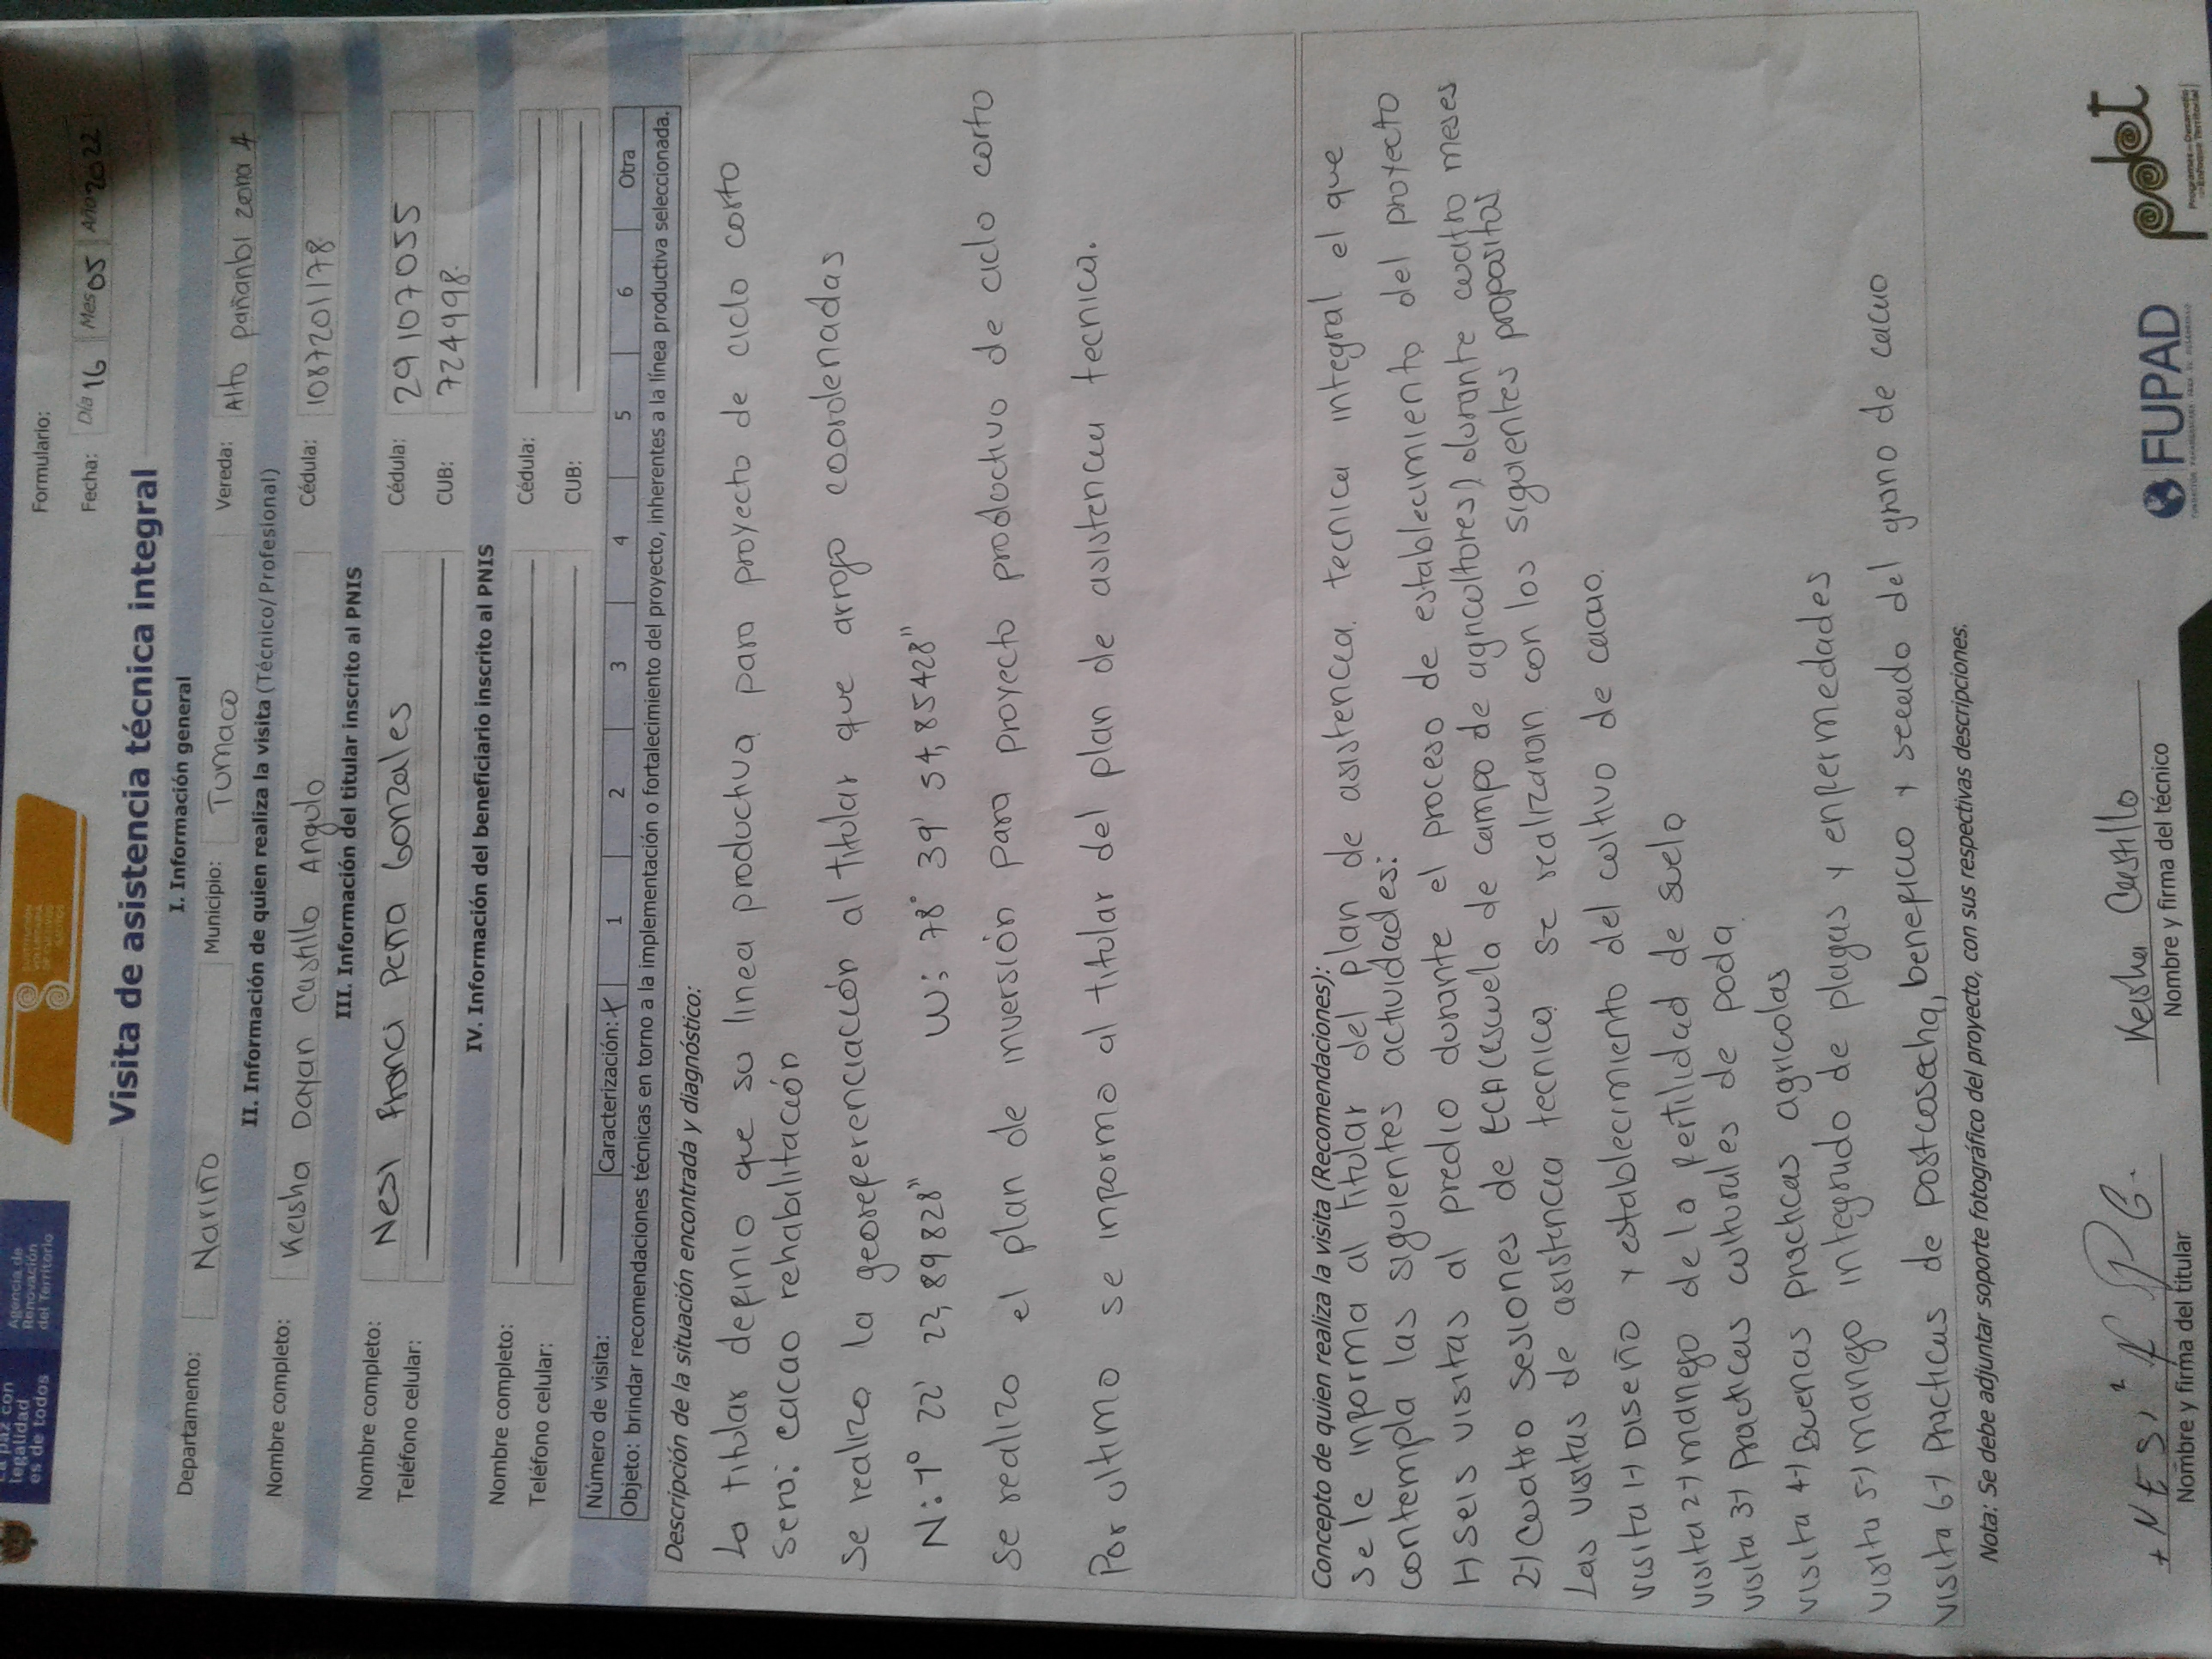 La paz con legalidad es de todos
Agencia de Renovación del Territorio
SUSTITUCIÓN VOLUNTARIA DE CULTIVOS ILÍCITOS
Formulario:
Fecha: Día 16 Mes 05 Año 2022
Visita de asistencia técnica integral
I. Información general
Departamento: Nariño Municipio: Tumaco Vereda: Alto Pañanbi zona 4
II. Información de quien realiza la visita (Técnico/Profesional)
Nombre completo: Keisha Dayan Castillo Angulo Cédula: 1087201178
III. Información del titular inscrito al PNIS
Nombre completo: Nesi Franci Peña Gonzales Cédula: 29107055
Teléfono celular: CUB: 724998.
IV. Información del beneficiario inscrito al PNIS
Nombre completo: Cédula:
Teléfono celular: CUB:
Número de visita: Caracterización: X 1 2 3 4 5 6 Otra
Objeto: brindar recomendaciones técnicas en torno a la implementación o fortalecimiento del proyecto, inherentes a la línea productiva seleccionada.
Descripción de la situación encontrada y diagnóstico:
La titular definio que su linea productiva para proyecto de ciclo corto
sera: cacao rehabilitación
Se realizo la georeferenciación al titular que arrojo coordenadas
N: 1° 22' 23,89828" W: 78° 39' 54,85428"
Se realizo el plan de inversión para proyecto productivo de ciclo corto
Por ultimo se informo al titular del plan de asistencia tecnica.
Concepto de quien realiza la visita (Recomendaciones):
Se le informa al titular del plan de asistencia tecnica integral el que
contempla las siguientes actividades:
1-) Seis visitas al predio durante el proceso de establecimiento del proyecto
2-) Cuatro sesiones de ECA (escuela de campo de agricultores) durante cuatro meses
Las visitas de asistencia tecnica se realizaran con los siguientes propositos
visita 1-) Diseño y establecimiento del cultivo de cacao.
visita 2-) manejo de la fertilidad de suelo
visita 3-) Practicas culturales de poda
visita 4-) Buenas practicas agricolas
visita 5-) manejo integrado de plagas y enfermedades
visita 6-) Practicas de postcosecha, beneficio y secado del grano de cacao
Nota: Se debe adjuntar soporte fotográfico del proyecto, con sus respectivas descripciones.
+ NESI F P G. Keisha Castillo
Nombre y firma del titular Nombre y firma del técnico
FUPAD
pdet
Programas de Desarrollo con Enfoque Territorial